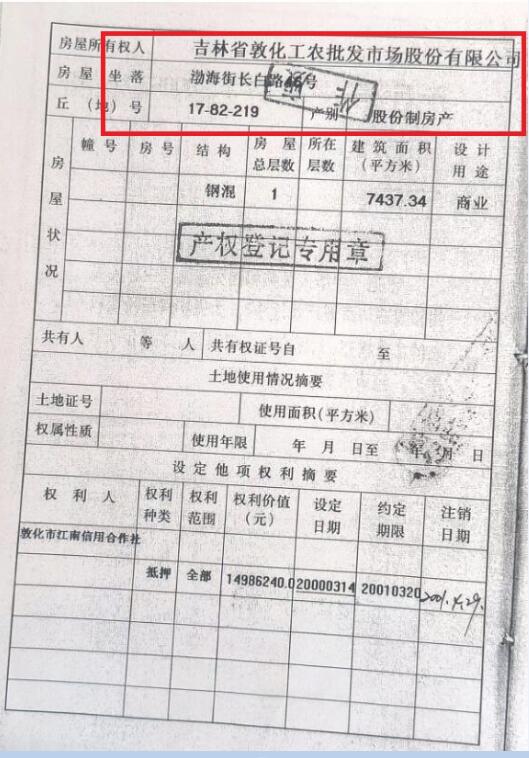 房屋所有权人 吉林省敦化工农批发市场股份有限公司
房屋坐落 渤海街长白路46号
丘(地)号 17-82-219 产别 股份制房产
房屋状况
幢号 房号 结构 房屋总层数 所在层数 建筑面积(平方米) 设计用途
钢混 1 7437.34 商业
产权登记专用章
共有人 等 人 共有权证号自 至
土地使用情况摘要
土地证号 使用面积(平方米)
权属性质 使用年限 年 月 日至 年 月 日
设定他项权利摘要
权利人 权利种类 权利范围 权利价值(元) 设定日期 约定期限 注销日期
敦化市江南信用合作社
抵押 全部 14986240.0 20000314 20010320 2001.4.29.